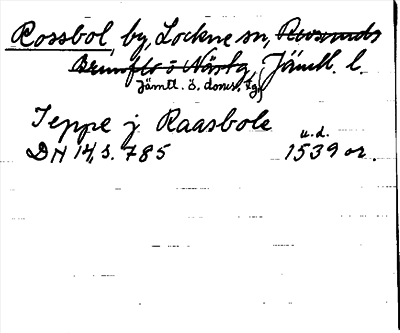 Rossbol, by, Lockne sn, Revsunds
Brunflo o Näsbg, Jämtl. l.
Jämtl. ö. doms. tg.
Jeppe j Raasbole
u.d.
DN 14, s. 785 1539 or.